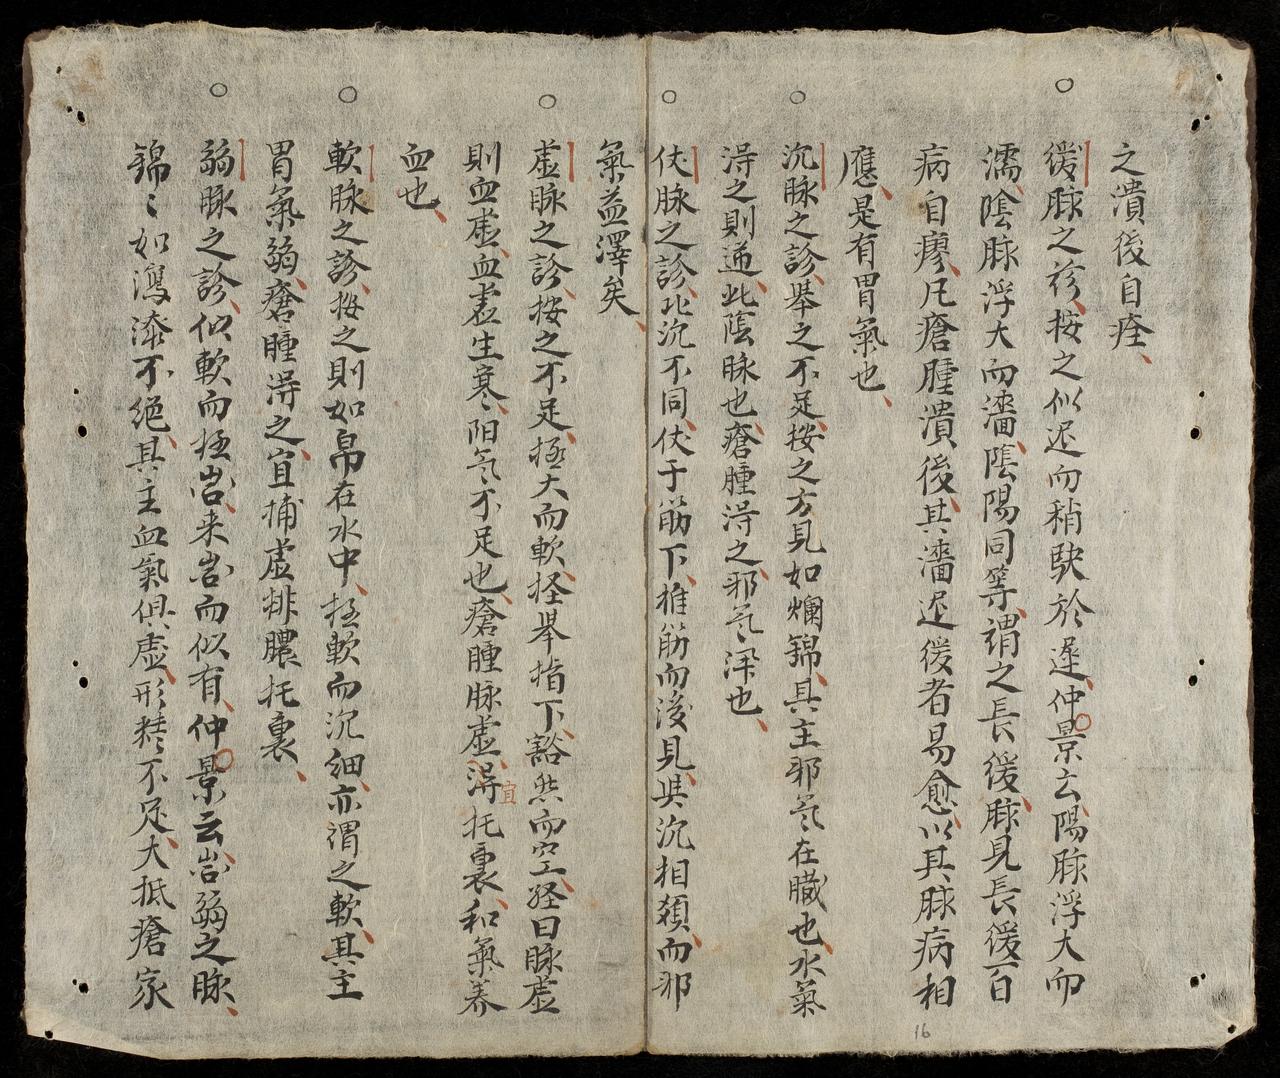 之潰後自痊、
○緩脉之診、按之似迟而稍駃於遲、仲景云、陽脉浮大而
濡、陰脉浮大而濇、陰陽同等、謂之長緩、脉見長緩百
病自瘳、凡瘡腫潰後、其濇迟緩者易愈、以其脉病相
應、是有胃氣也、
○沉脉之診、舉之不足、按之方見如爛錦、其主邪氣在臓也、水氣
淂之則逆、此陰脉也、瘡腫淂之、邪氣深也、
○伏脉之診、比沉不同、伏于筋下、推筋而後見、與沉相類、而邪
氣益深矣、
○虚脉之診、按之不足、極大而軟、経舉指下、豁然而空、経曰脉虚
則血虚、血虚生寒、阳氣不足也、瘡腫脉虚、淂宜托裏、和氣养
血也、
○軟脉之診、按之則如帛在水中、極軟而沉細、亦謂之軟、其主
胃氣弱、瘡腫淂之、宜補虚排膿托裏、
○弱脉之診、似軟而極㣲、来㣲而似有、仲景云、㣲弱之脉、
錦〻如瀉漆不絕、其主血氣俱虚、形精不足、大抵瘡家
宜
16